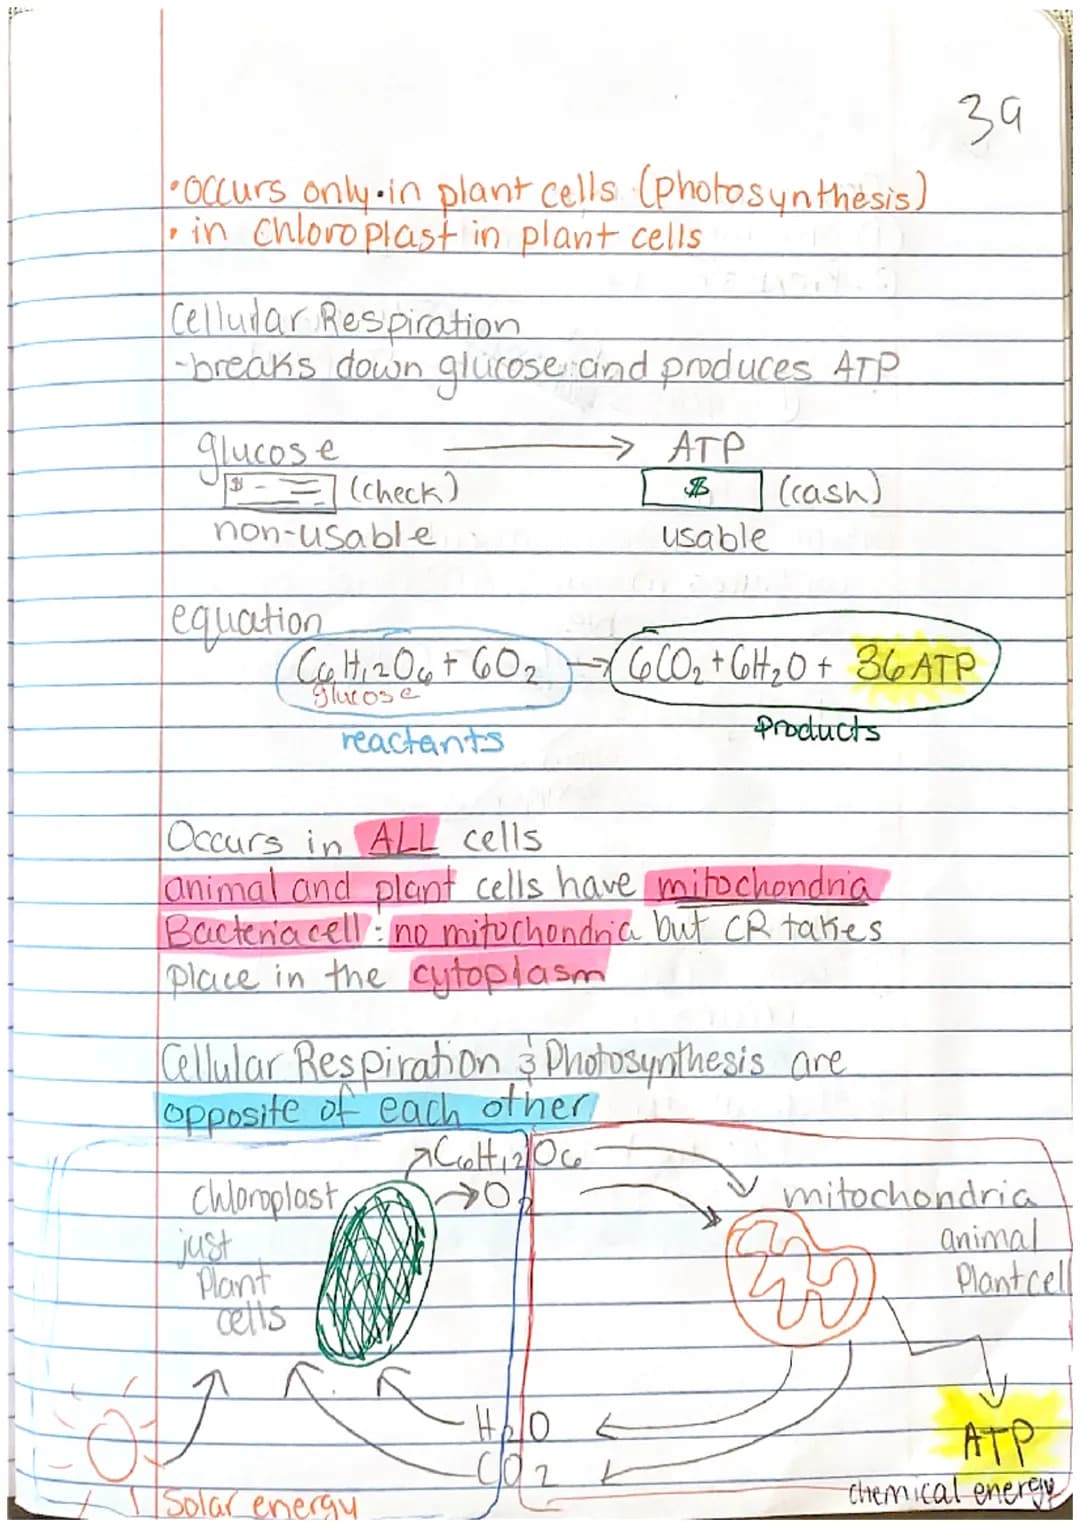 39
•Occurs only in plant cells (photosynthesis)
• in chloroplast in plant cells
Cellular Respiration
-breaks down glucose and produces ATP
glucose → ATP
$ (check) $ (cash)
non-usable usable
equation
C6H12O6 + 6O2 → 6CO2 + 6H2O + 36 ATP
glucose
reactants products
Occurs in ALL cells
animal and plant cells have mitochondria
Bacteria cell: no mitochondria but CR takes
place in the cytoplasm
Cellular Respiration & Photosynthesis are
opposite of each other
C6H12O6
chloroplast O2 mitochondria
just animal
Plant Plant cell
cells
H2O
CO2 ATP
Solar energy chemical energy